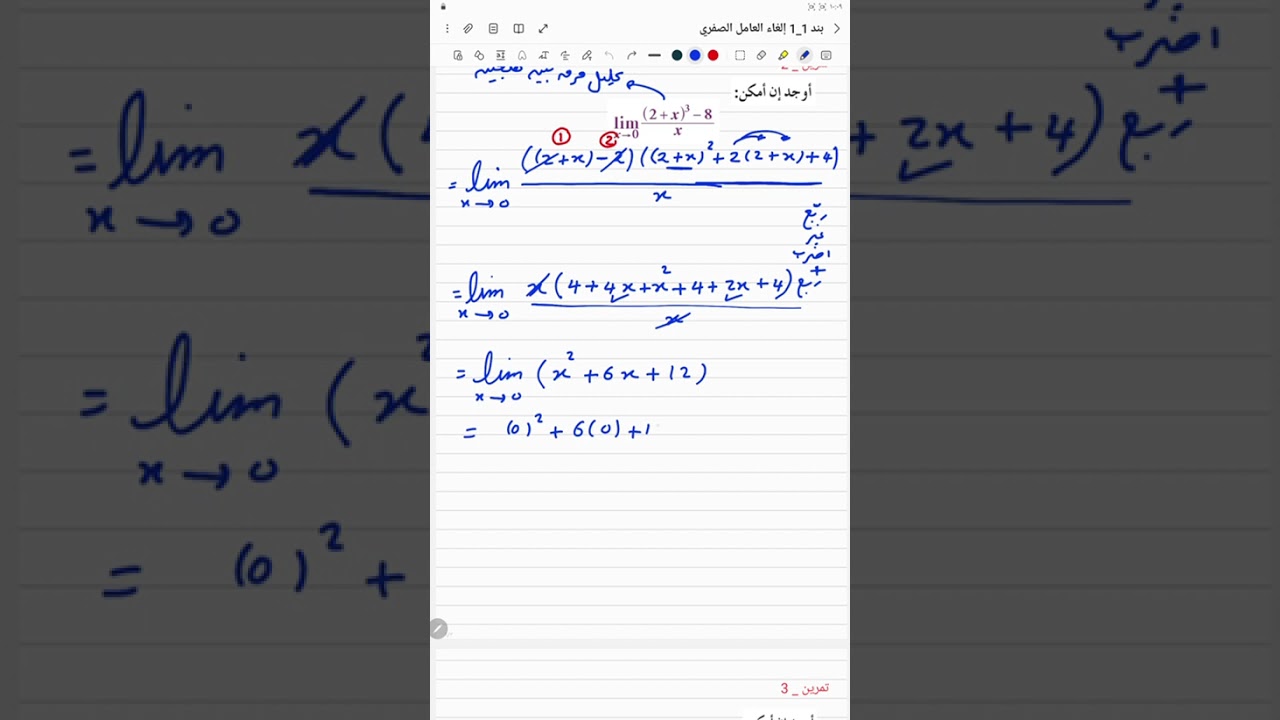 ١٠:٠٩
بند 1_1 إلغاء العامل الصفري
تمرين _ 2
تحليل فرق بين مكعبين
أوجد إن أمكن:
lim x→0 ((2 + x)³ − 8) / x
① ②
= lim x→0 ((2+x) − 2) ((2+x)² + 2(2+x) + 4) / x
ربّع
غير
اضرب
+
ربع
= lim x→0 x(4 + 4x + x² + 4 + 2x + 4) / x
= lim x→0 (x² + 6x + 12)
= (0)² + 6(0) + 1
تمرين _ 3